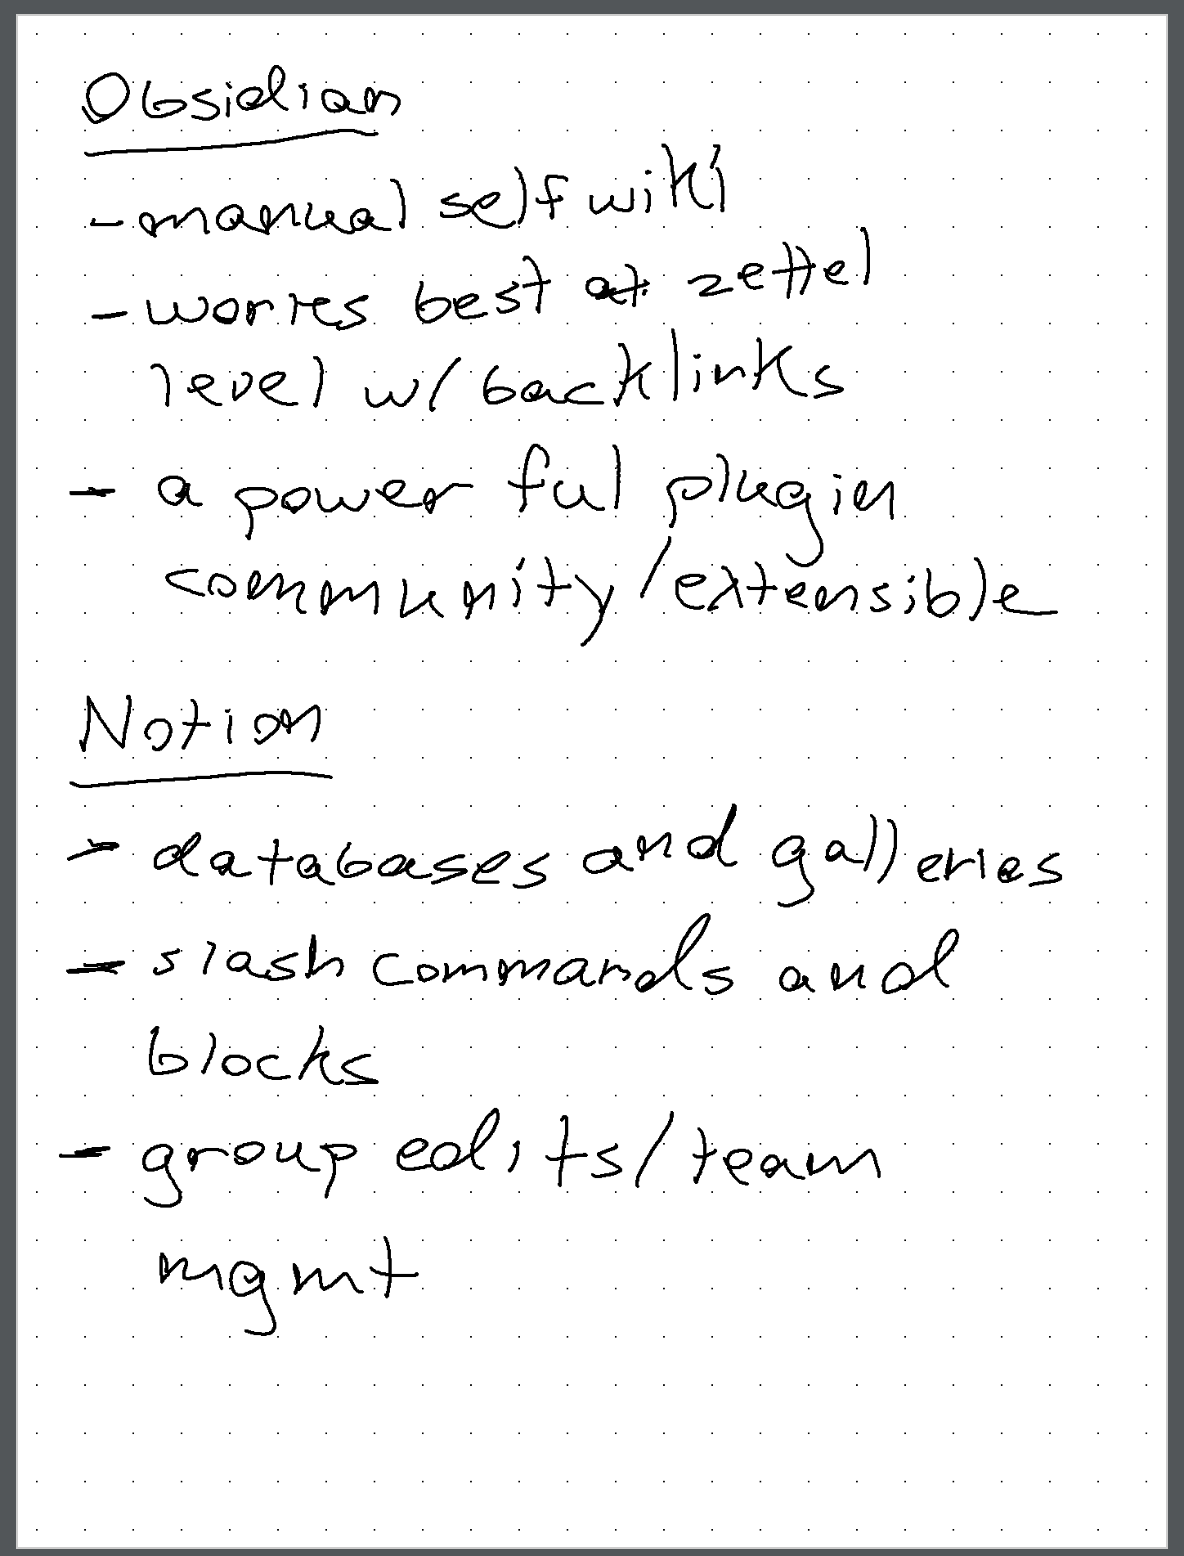 Obsidian
- manual self wiki
- works best at zettel
level w/ backlinks
- a powerful plugin
community/extensible
Notion
- databases and galleries
- slash commands and
blocks
- group edits/team
mgmt